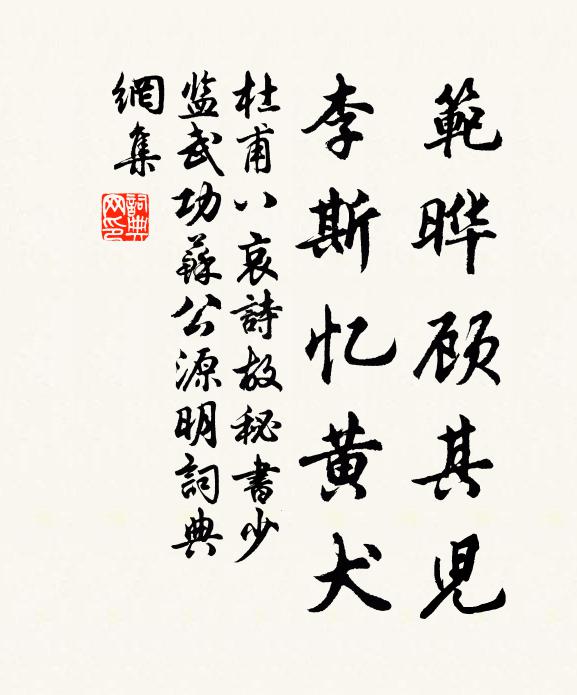 範晔顾其児
李斯忆黄犬
杜甫八哀詩故秘書少
监武功蘇公源明詞典
網集
詞典网印